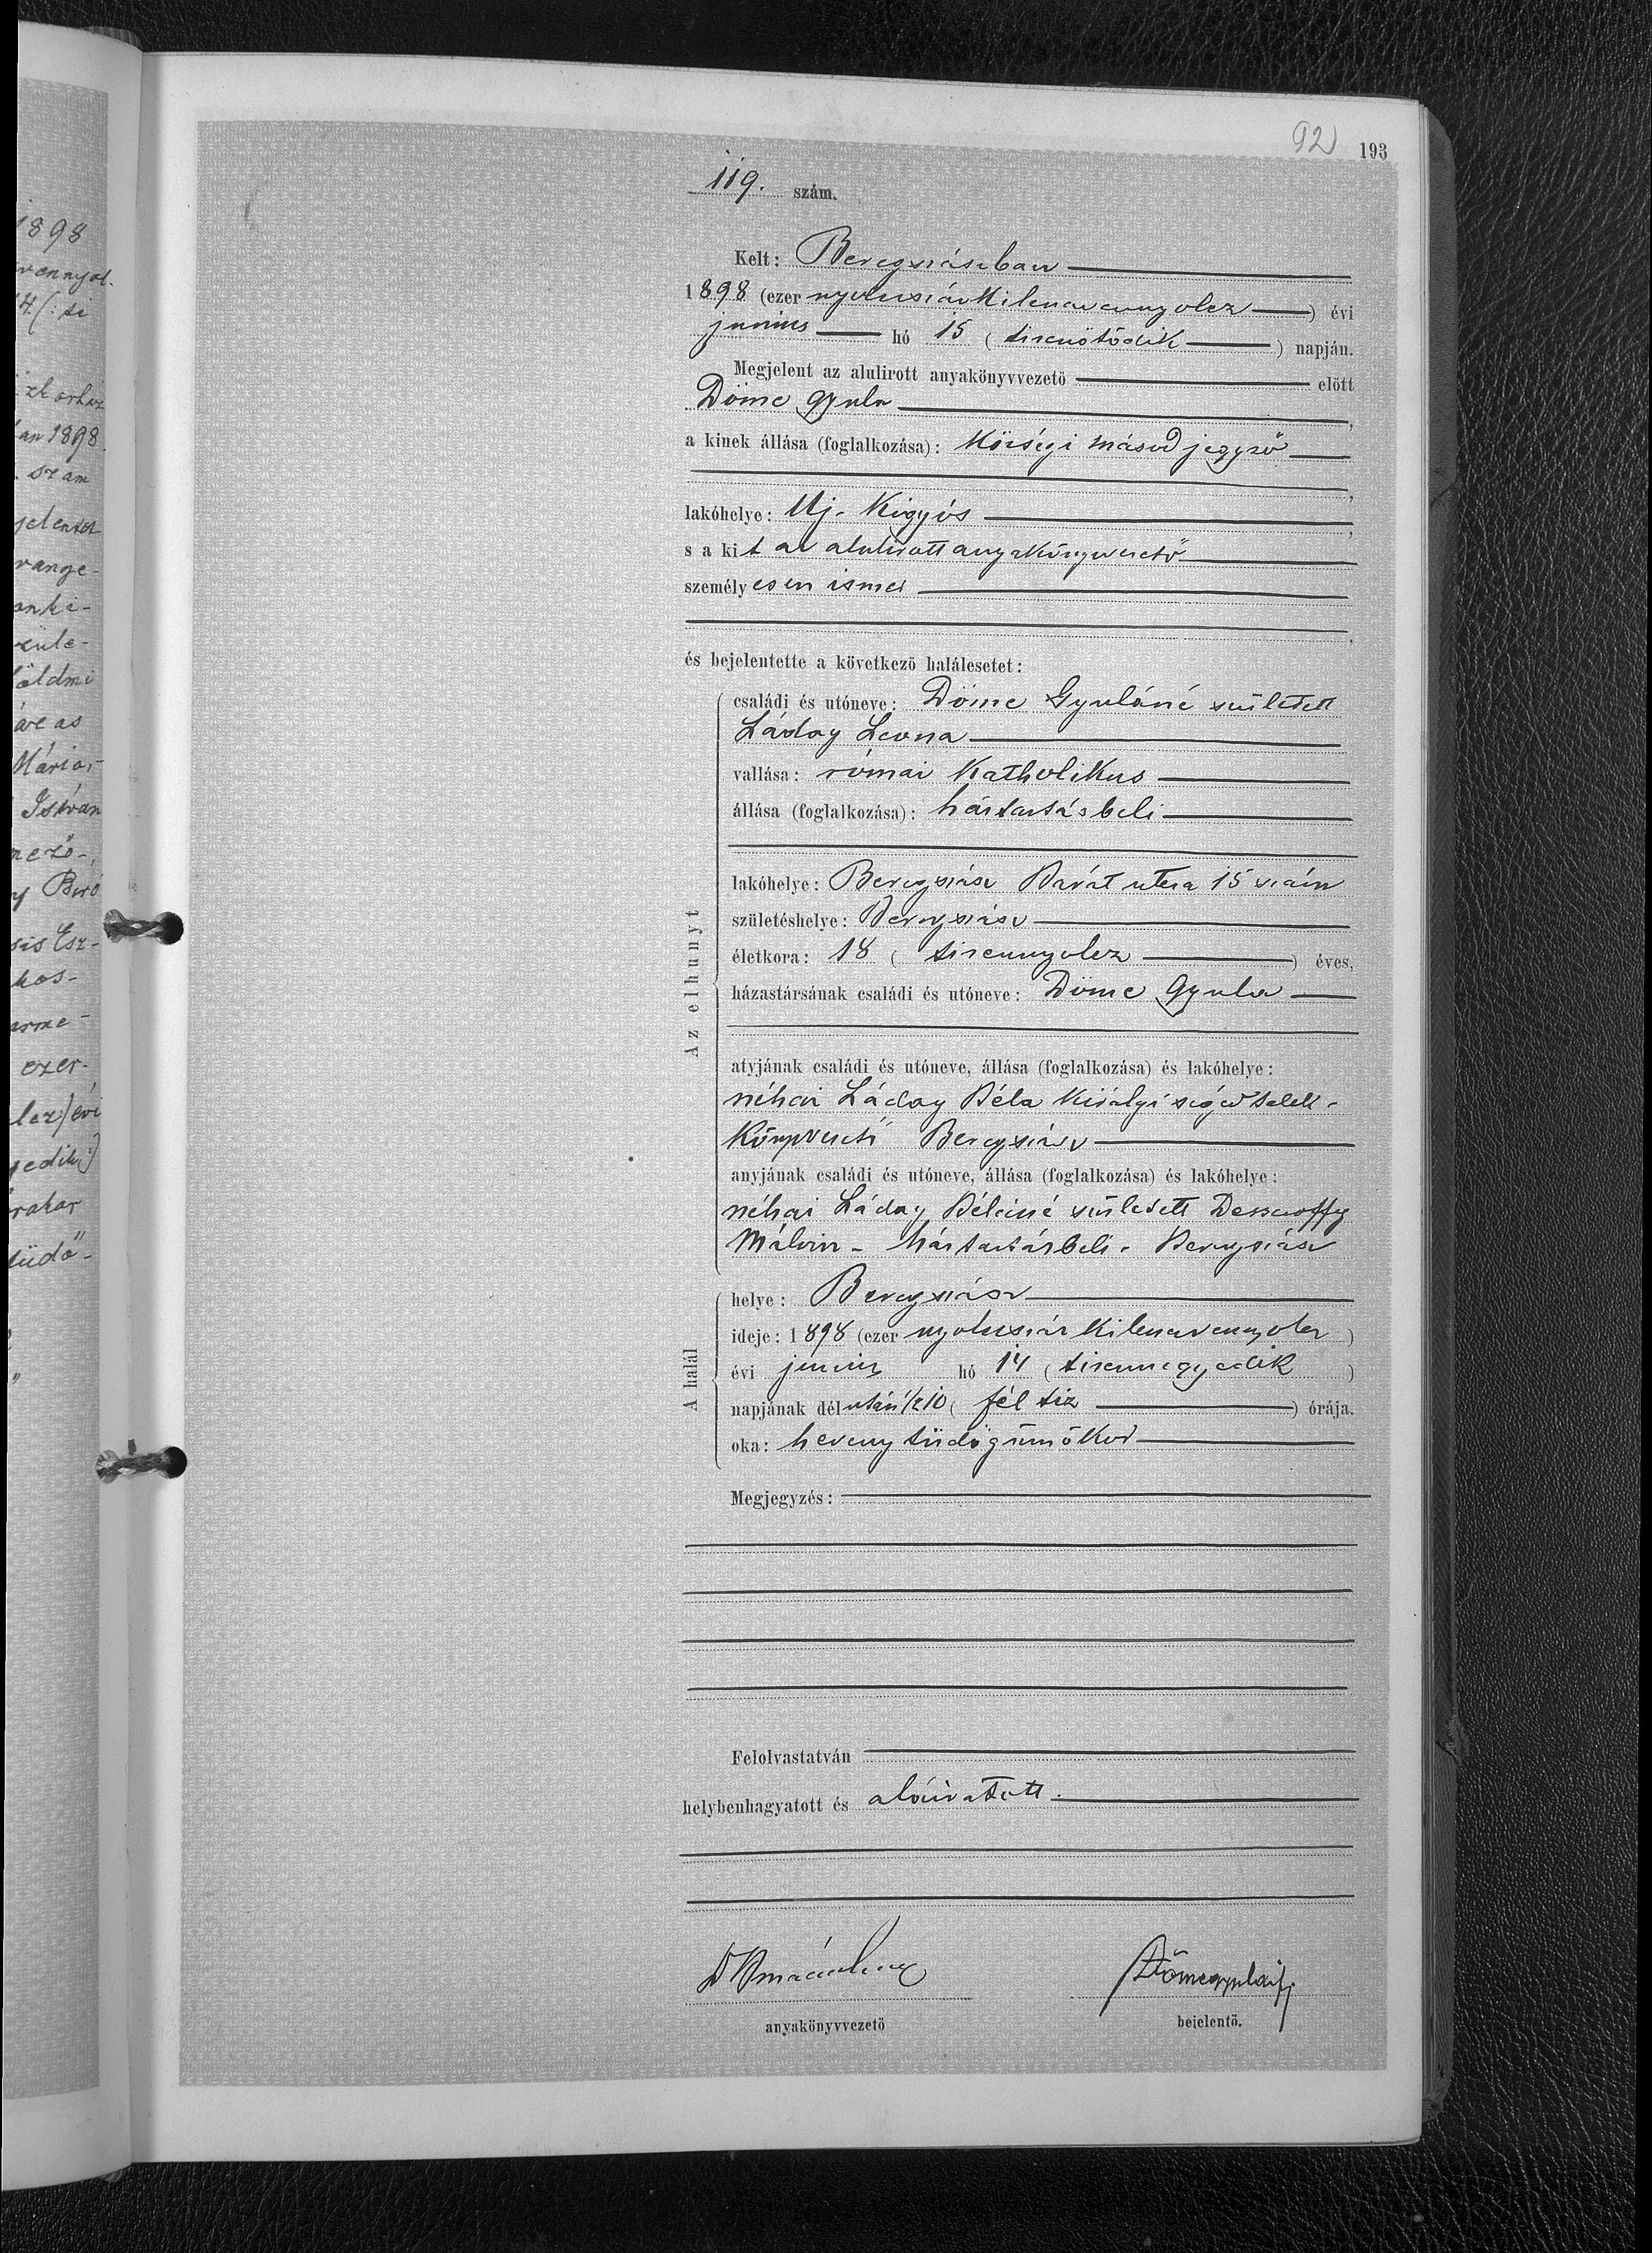 1898
vennyol.
4 (: ti
an 1898.
szám
jelentet
range-
anki-
züle-
földmi
Mária,
István
mező-,
y Biró
sis Esz-
kos-
ezer-
lcz) évi
gedik:)
órakor
tüdő-
92 193
119. szám.
Kelt: Beregszászban
1898 (ezer nyolczszázkilenczvennyolcz) évi
junius hó 15 (tizenötödik) napján.
Megjelent az alulirott anyakönyvvezető előtt
Döme Gyula,
a kinek állása (foglalkozása): községi másod jegyző
,
lakóhelye: Uj-Kigyós,
s a kit az alulirott anyakönyvvezető
személyesen ismer
,
és bejelentette a következő halálesetet:
Az elhunyt
családi és utóneve: Döme Gyuláné született
Láday Leona
vallása: római katholikus
állása (foglalkozása): háztartásbeli
lakóhelye: Beregszász Barát utcza 15 szám
születéshelye: Beregszász
életkora: 18 (tizennyolcz) éves,
házastársának családi és utóneve: Döme Gyula
atyjának családi és utóneve, állása (foglalkozása) és lakóhelye:
néhai Láday Béla királyi segéd telek-
könyvvezető Beregszász
anyjának családi és utóneve, állása (foglalkozása) és lakóhelye:
néhai Láday Béláné született Dessewffy
Málvin - háztartásbeli - Beregszász
A halál
helye: Beregszász
ideje: 1898 (ezer nyolczszáz kilenczvennyolcz)
évi junius hó 14 (tizennegyedik)
napjának délután 1/2 10 (fél tiz) órája.
oka: heveny tüdőgümőkór
Megjegyzés:
Felolvastatván
helybenhagyatott és aláiratott.
Döme Gyula
anyakönyvvezető bejelentő.